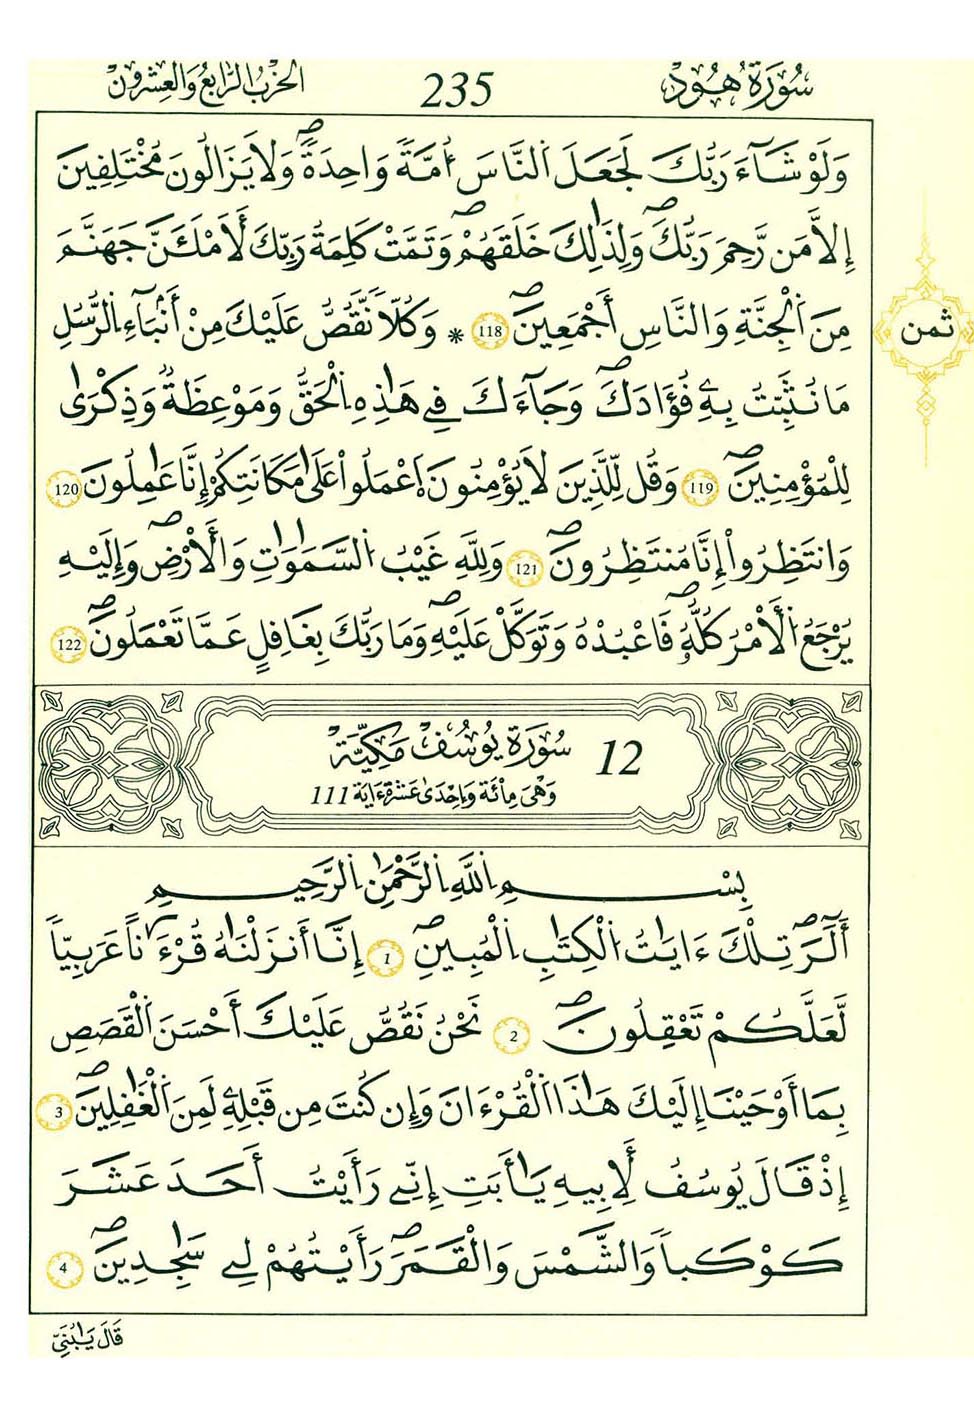 سُورَةُ هُود 235 الحزب الرابع والعشرون
وَلَوْ شَآءَ رَبُّكَ لَجَعَلَ اَلنَّاسَ أُمَّةً وَاحِدَةً وَلاَ يَزَالُونَ مُخْتَلِفِينَ
إِلاَّ مَن رَّحِمَ رَبُّكَ وَلِذَٰلِكَ خَلَقَهُمْ وَتَمَّتْ كَلِمَةُ رَبِّكَ لَأَمْلَـَٔنَّ جَهَنَّمَ
مِنَ اَلْجِنَّةِ وَالنَّاسِ أَجْمَعِينَ 118 * وَكُلّاً نَّقُصُّ عَلَيْكَ مِنْ أَنۢبَآءِ اِلرُّسُلِ
ثمن
مَا نُثَبِّتُ بِهِۦ فُؤَادَكَ وَجَآءَكَ فِے هَٰذِهِ اِلْحَقُّ وَمَوْعِظَةٌ وَذِكْرَىٰ
لِلْمُؤْمِنِينَ 119 وَقُل لِّلَّذِينَ لَا يُؤْمِنُونَ اَعْمَلُواْ عَلَىٰ مَكَانَتِكُمْ إِنَّا عَٰمِلُونَ 120
وَانتَظِرُواْ إِنَّا مُنتَظِرُونَ 121 وَلِلَّهِ غَيْبُ اُلسَّمَٰوَٰتِ وَالْأَرْضِ وَإِلَيْهِ
يَرْجِعُ اُلْأَمْرُ كُلُّهُۥ فَاعْبُدْهُ وَتَوَكَّلْ عَلَيْهِ وَمَا رَبُّكَ بِغَافِلٍ عَمَّا تَعْمَلُونَ 122
12 سُورَةُ يُوسُفَ مَكِّيَّة
وَهْيَ مِائَة وَإِحْدَىٰ عَشْرَةَ ءَايَة 111
بِسْمِ اِللَّهِ اِلرَّحْمَٰنِ اِلرَّحِيمِ
أَلَٓرَ تِلْكَ ءَايَٰتُ اُلْكِتَٰبِ اِلْمُبِينِ 1 إِنَّا أَنزَلْنَٰهُ قُرْءَٰناً عَرَبِيّاً
لَّعَلَّكُمْ تَعْقِلُونَ 2 نَحْنُ نَقُصُّ عَلَيْكَ أَحْسَنَ اَلْقَصَصِ
بِمَا أَوْحَيْنَا إِلَيْكَ هَٰذَا اَلْقُرْءَانَ وَإِن كُنتَ مِن قَبْلِهِۦ لَمِنَ اَلْغَٰفِلِينَ 3
إِذْ قَالَ يُوسُفُ لِأَبِيهِ يَٰأَبَتِ إِنِّے رَأَيْتُ أَحَدَ عَشَرَ
كَوْكَباً وَالشَّمْسَ وَالْقَمَرَ رَأَيْتُهُمْ لِے سَٰجِدِينَ 4
قَالَ يَٰبُنَيِّ